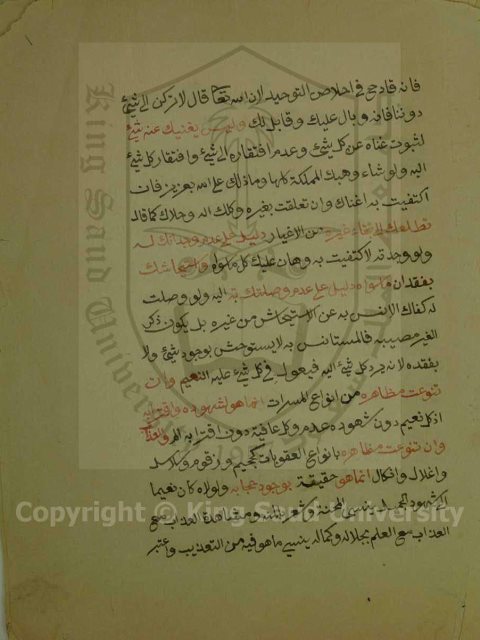 فانه قادح في اخلاص التوحيد لان الله تعالى قال لا تركن الى شيئ
دوننا فانه وبال عليك وقاتل لك وليس يغنيك عنه شيئ
لثبوت غناه عن كل شيئ وعدم افتقاره الى شيئ وافتقار كل شيئ
اليه ولو شاء وهبك المملكة كلها وما ذلك على الله بعزيز فان
اكتفيت به اغناك وان تعلقت بغيره وكلك اليه وخلاك كما قال
تطلعك الى بقاء غيره من الاغيار دليل على عدم وجدانك له
ولو وجدته لاكتفيت به وهان عليك كل ما سواه واستيحاشك
بفقدان ما سواه دليل على عدم وصلتك به اليه ولو وصلت
له كفاك الانس به عن الاستيحاش من غيره بل يكون ذكر
الغير مصيبة فالمستانس به لا يستوحش بوجود شيئ ولا
بفقده لانه يرد كل شيئ اليه فيعول في كل شيئ عليه النعيم وان
تنوعت مظاهره من انواع المسرات انما هو لشهوده واقترابه
اذ كل نعيم دون شهوده عدم وكل عافية دون اقترابه الم والعذاب
وان تنوعت مظاهره بانواع العقوبات كجحيم وزقوم وسلاسل
واغلال وانكال انما هو حقيقة بوجود حجابه ولولاه كان نعيما
اذ شهود الجميل ينسي المحنة ومشاهدة العذاب مع
العذاب مع العلم بجلاله وكماله ينسي ما هو فيه من التعذيب واعتبر
Copyright © King Saud University
King Saud University
1957